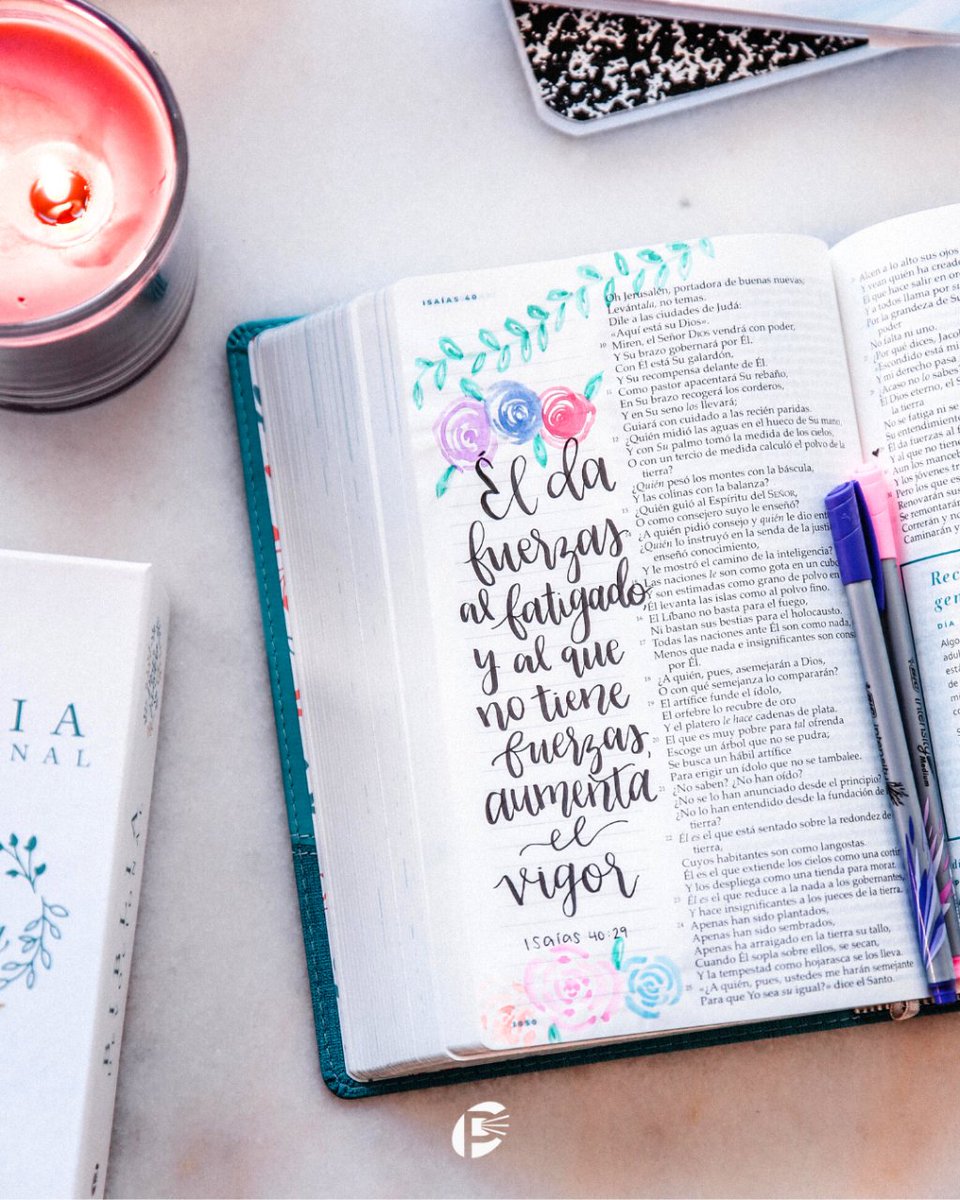 ISAÍAS 40
Él da
fuerzas
al fatigado,
y al que
no tiene
fuerzas,
aumenta
el
vigor
Isaías 40:29
1050
Oh Jerusalén, portadora de buenas nuevas;
Levántala, no temas.
Dile a las ciudades de Judá:
«Aquí está su Dios».
10 Miren, el Señor DIOS vendrá con poder,
Y Su brazo gobernará por Él.
Con Él está Su galardón,
Y Su recompensa delante de Él.
11 Como pastor apacentará Su rebaño,
En Su brazo recogerá los corderos,
Y en Su seno los llevará;
Guiará con cuidado a las recién paridas.
12 ¿Quién midió las aguas en el hueco de Su mano,
Y con Su palmo tomó la medida de los cielos,
O con un tercio de medida calculó el polvo de la
tierra?
¿Quién pesó los montes con la báscula,
Y las colinas con la balanza?
13 ¿Quién guió al Espíritu del SEÑOR,
O como consejero suyo le enseñó?
14 ¿A quién pidió consejo y quién le dio
¿Quién lo instruyó en la senda de la
enseñó conocimiento,
Y le mostró el camino de la inteligencia?
Las naciones le son como gota en un cubo
Y son estimadas como grano de polvo en
Él levanta las islas como al polvo fino.
16 El Líbano no basta para el fuego,
Ni bastan sus bestias para el holocausto.
17 Todas las naciones ante Él son como nada,
Menos que nada e insignificantes son
por Él.
18 ¿A quién, pues, asemejarán a Dios,
O con qué semejanza lo compararán?
19 El artífice funde el ídolo,
El orfebre lo recubre de oro
Y el platero le hace cadenas de plata.
20 El que es muy pobre para tal ofrenda
Escoge un árbol que no se pudra;
Se busca un hábil artífice
Para erigir un ídolo que no se tambalee.
21 ¿No saben? ¿No han oído?
¿No se lo han anunciado desde el principio?
¿No lo han entendido desde la fundación de
tierra?
22 Él es el que está sentado sobre la redondez de
tierra,
Cuyos habitantes son como langostas.
Él es el que extiende los cielos como una
Y los despliega como una tienda para morar.
23 Él es el que reduce a la nada a los gobernantes,
Y hace insignificantes a los jueces de la tierra.
24 Apenas han sido plantados,
Apenas han sido sembrados,
Apenas ha arraigado en la tierra su tallo,
Cuando Él sopla sobre ellos, se secan,
Y la tempestad como hojarasca se los lleva.
25 «¿A quién, pues, ustedes me harán semejante
Para que Yo sea su igual?» dice el Santo.
Alcen a lo alto sus ojos
Y vean quién ha creado
El que hace salir en
Y a todos llama por su
Por la grandeza de Su
poder
No falta ni uno.
¿Por qué dices, Jacob
«Escondido está mi
Y mi derecho pasa
¿Acaso no lo sabes?
El Dios eterno, el
la tierra
No se fatiga ni se
Su entendimiento
Él da fuerzas al
Y al que no tiene
Aun los
Y los jóvenes
Pero los que
Renovarán sus
Se remontarán
Correrán y no
Caminarán y
DÍA
intensity
Medium
IA
NAL